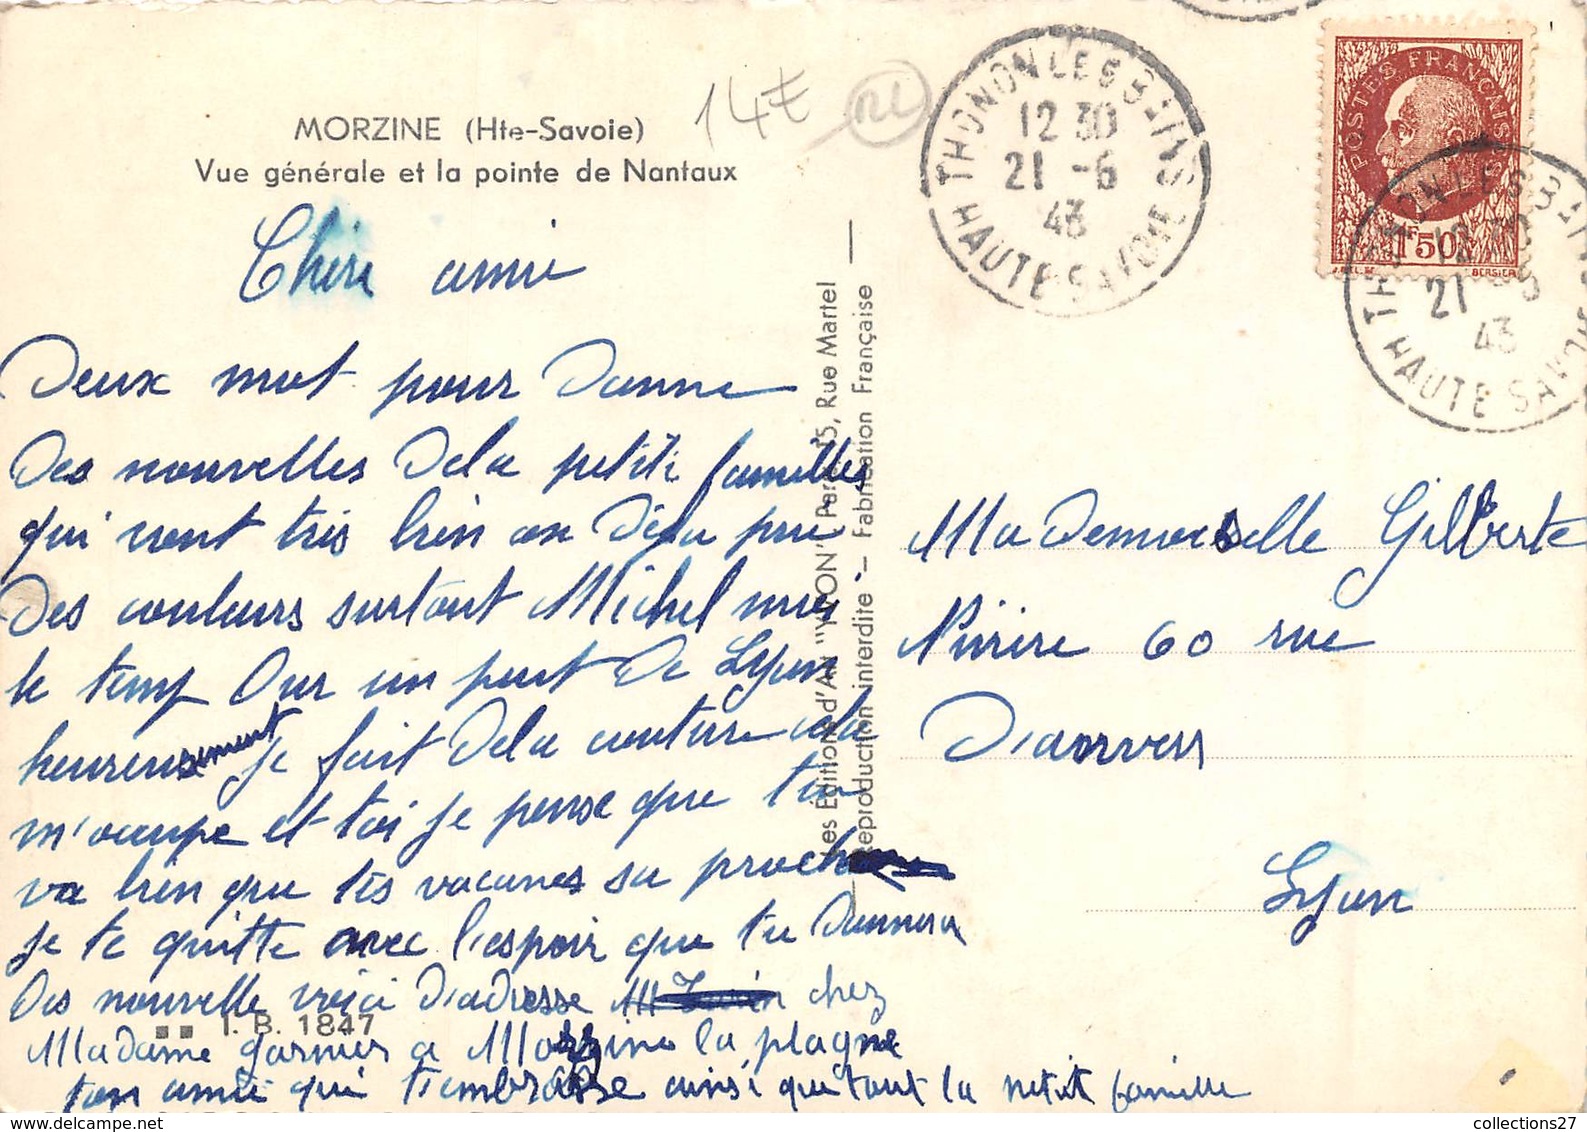 MORZINE (Hte-Savoie)
Vue générale et la pointe de Nantaux
14€
THONON LES BAINS
12 30
21 -6
43
HAUTE SAVOIE
POSTES FRANÇAISES
1F50
BERSIER
THONON LES BAINS
12 30
21 -6
43
HAUTE SAVOIE
Chère amie
Deux mot pour Donne
Des nouvelles Dela petite familles
qui vont très bien on Déja pris
Des couleurs surtout Michel mais
le temp Dur un peut De Lyon
heureusement je fait Dela couture cela
m'occupe et toi je pense que ta
va bien que tes vacances sa proche
je te quitte avec l'espoir que tu Donnera
Des nouvelle voici D'adresse chez
Madame garnier a Morzine la plagne
ton amie qui t'embrasse ainsi que tout la petit famille
I. B. 1847
Les Editions d'Art "YVON", Paris, 15, Rue Martel
Reproduction interdite — Fabrication Française
MaDemoiselle Gilberte
Rivière 60 rue
D'anvers
Lyon
collections27